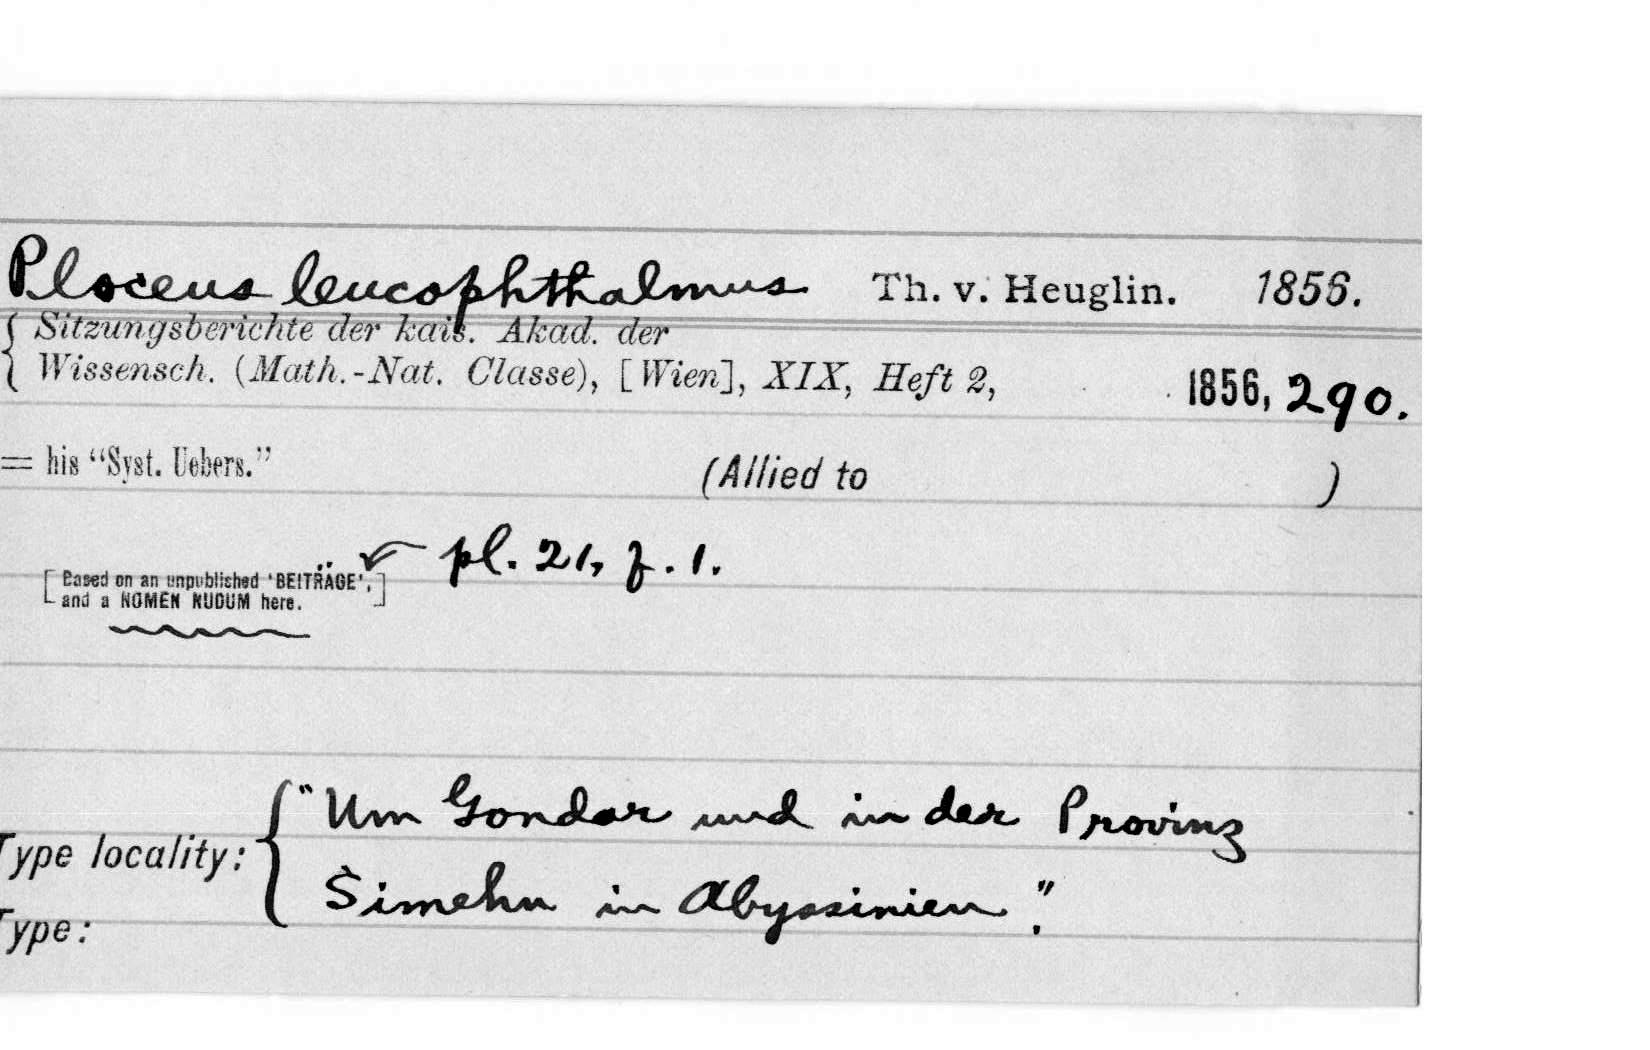 Ploceus leucophthalmus Th. v. Heuglin. 1856.
Sitzungsberichte der kais. Akad. der
Wissensch. (Math.-Nat. Classe), [Wien], XIX, Heft 2, 1856, 290.
= his "Syst. Uebers." (Allied to )
pl. 21, f. 1.
[Based on an unpublished 'BEITRÄGE',
and a NOMEN NUDUM here.]
"Um Gondar und in der Provinz
Type locality:
Simehn in Abyssinien".
Type: